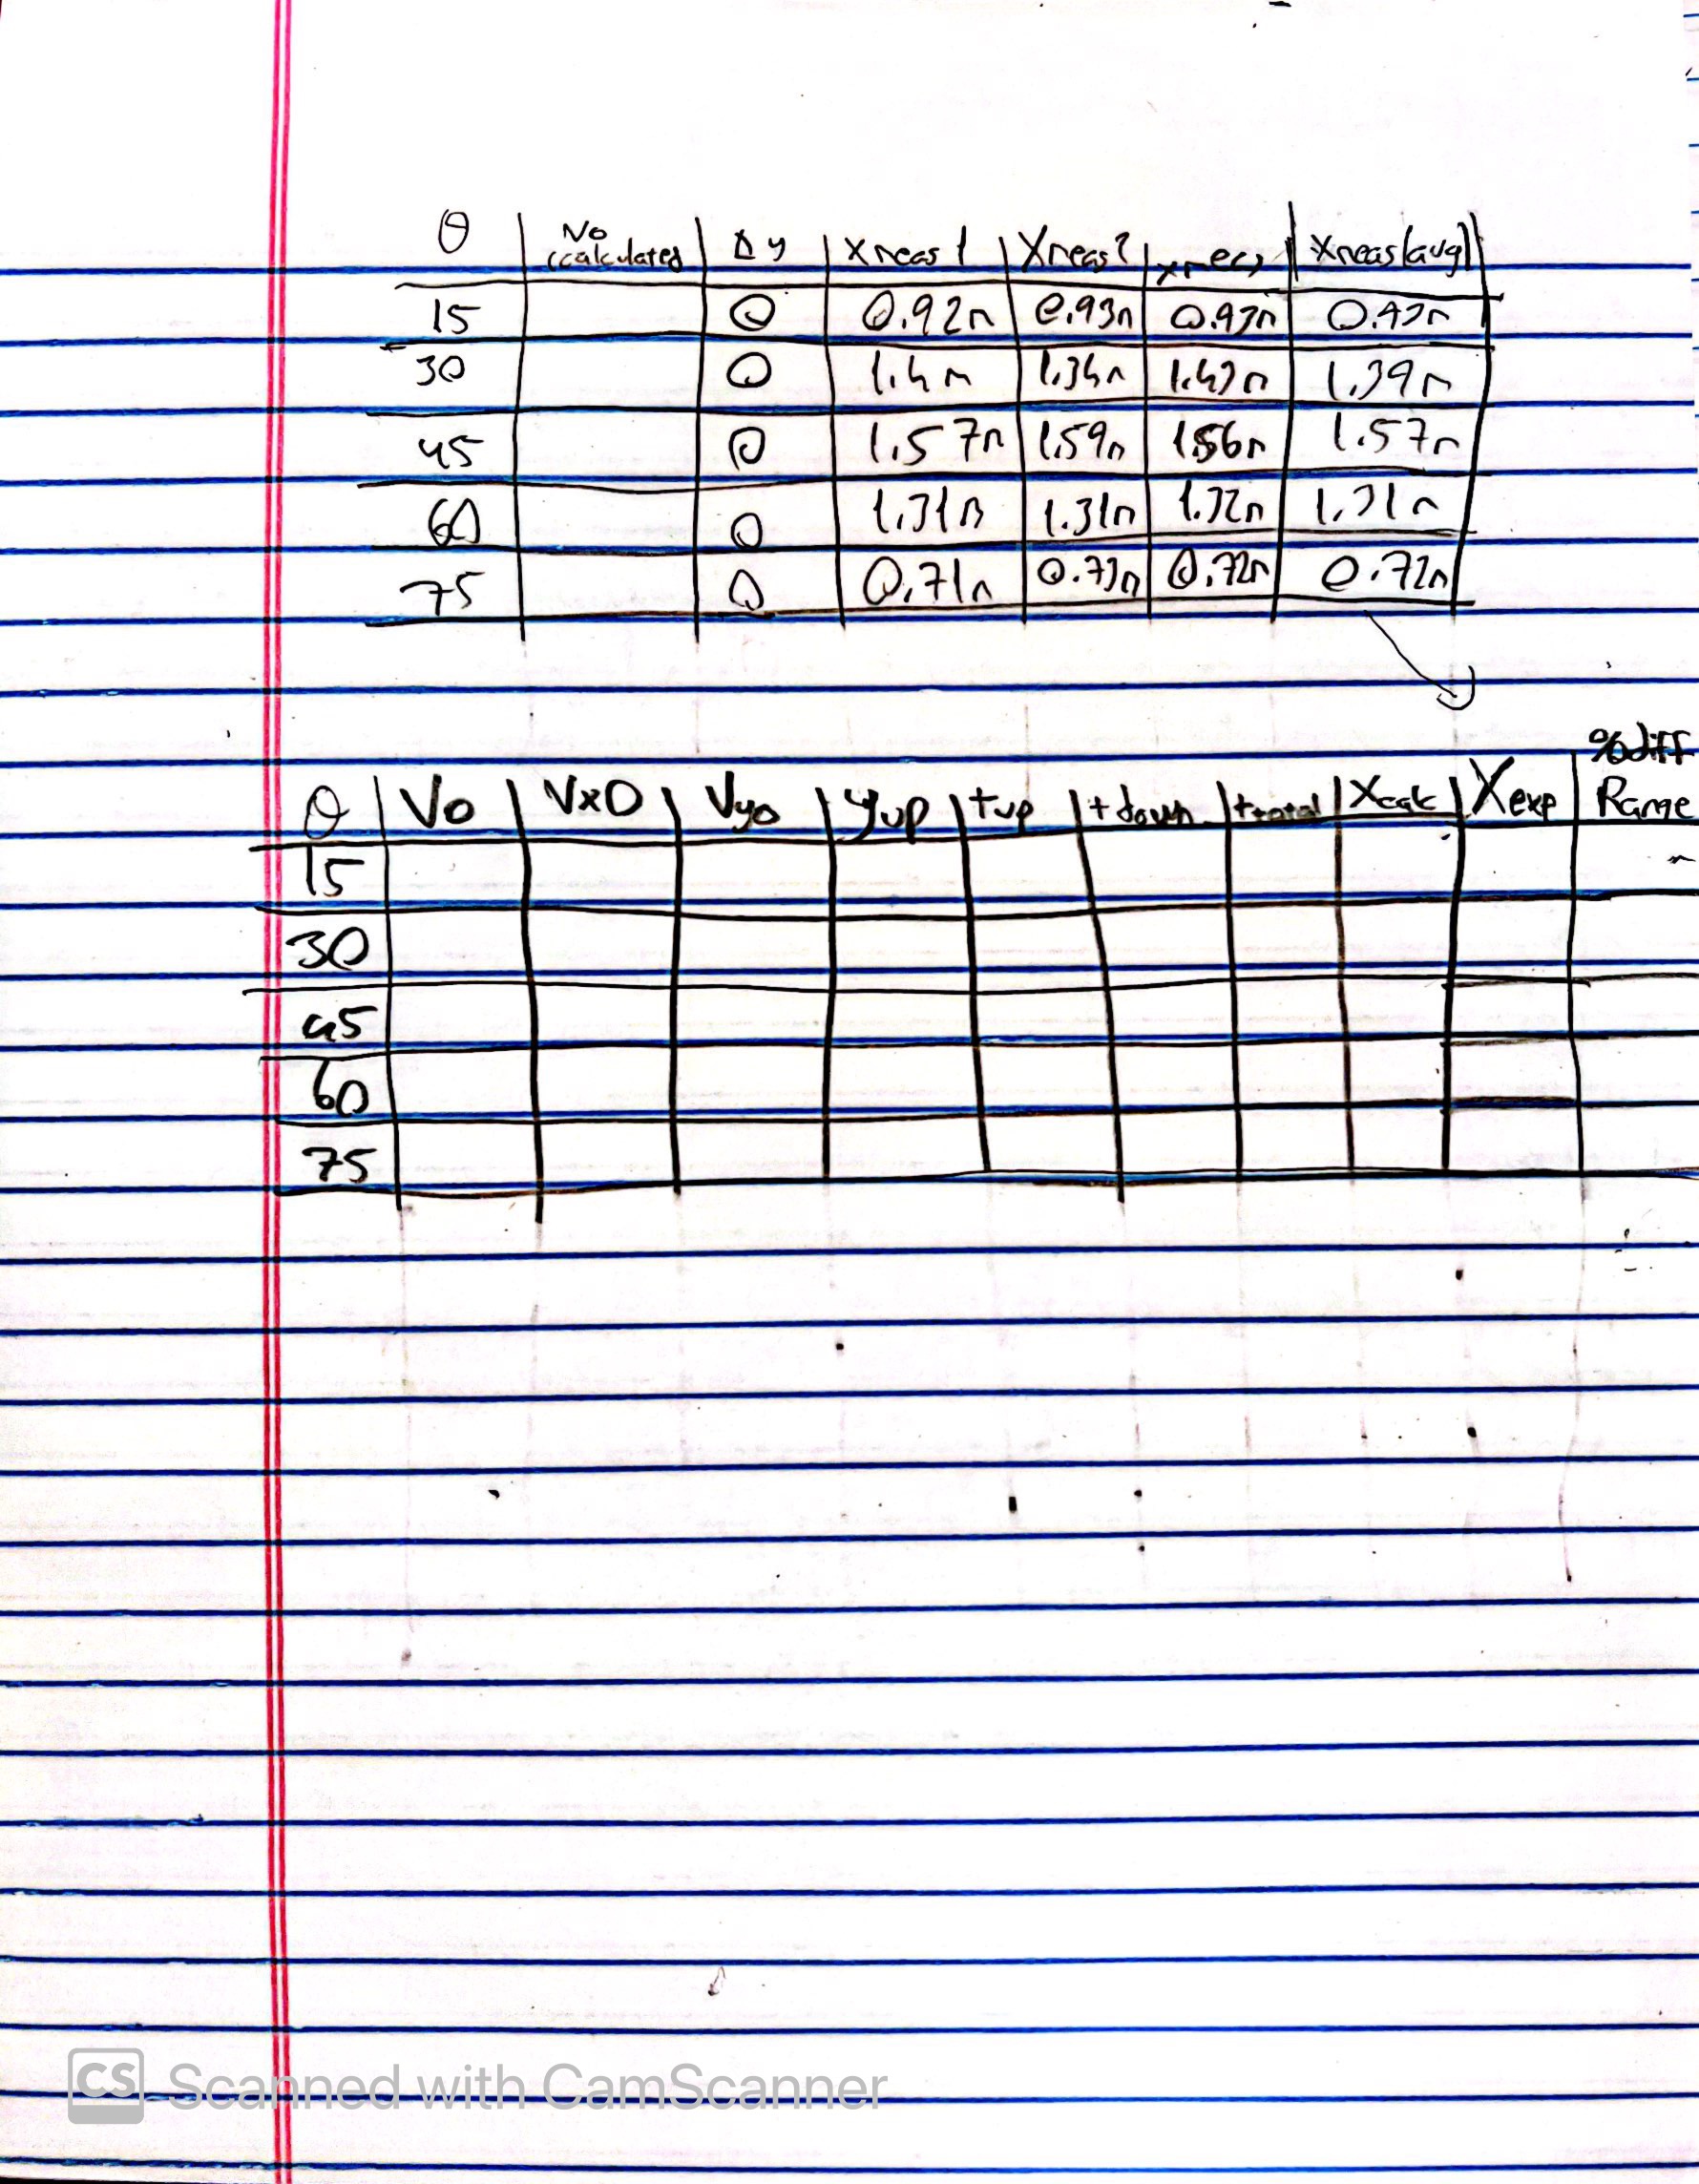 θ Vo (calculated) Δy Xmeas 1 Xmeas 2 Xmeas(avg)
15 0 0.92m 0.93m 0.93m 0.93m
30 0 1.4m 1.34m 1.43m 1.39m
45 0 1.57m 1.59m 1.56m 1.57m
60 0 1.31m 1.31m 1.32m 1.31m
75 0 0.71m 0.73m 0.72m 0.72m
θ Vo Vxo Vyo yup tup tdown ttotal Xcalc Xexp %diff Range
15
30
45
60
75
CS Scanned with CamScanner